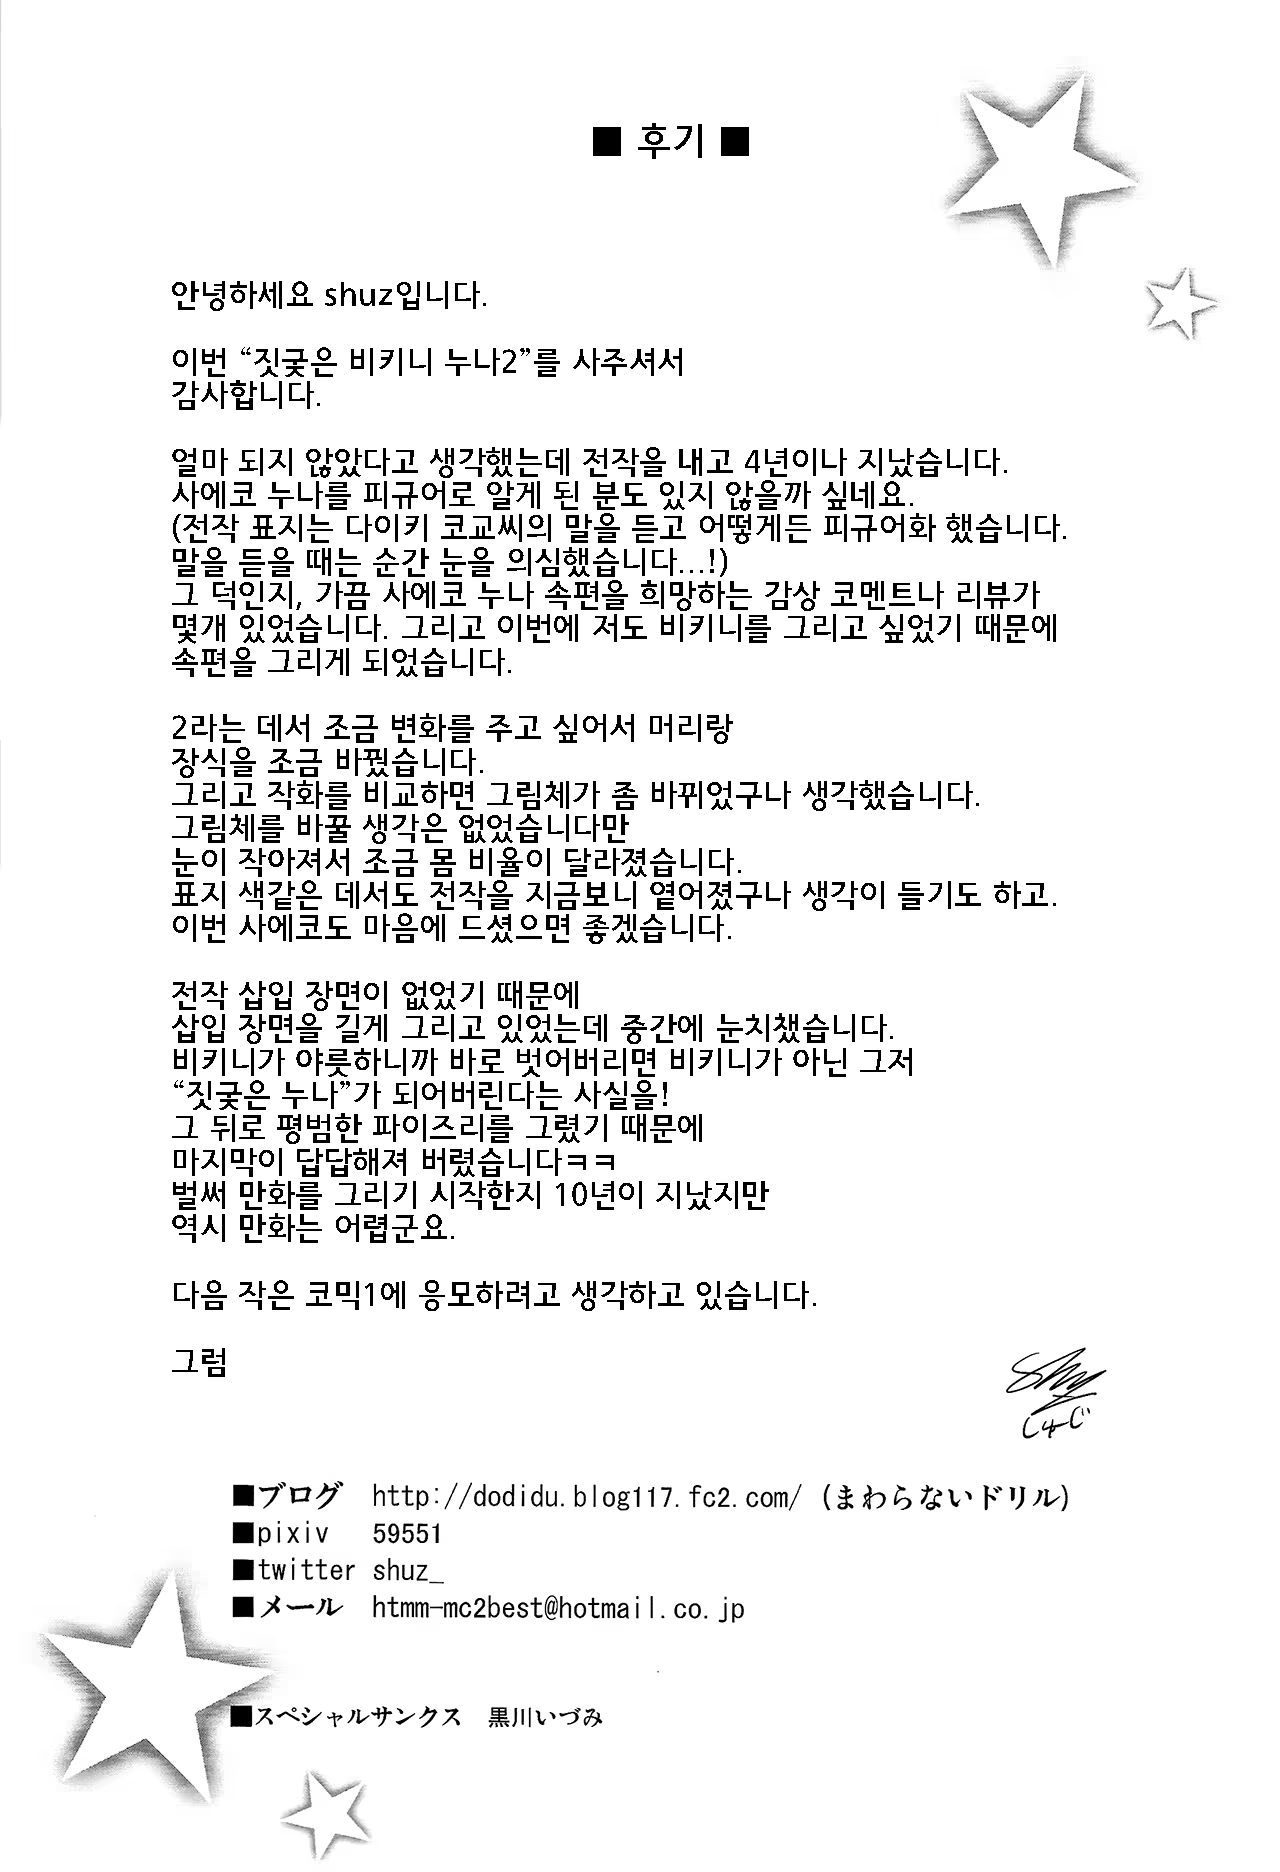 ■ 후기 ■
안녕하세요 shuz입니다.
이번 “짓궂은 비키니 누나2”를 사주셔서
감사합니다.
얼마 되지 않았다고 생각했는데 전작을 내고 4년이나 지났습니다.
사에코 누나를 피규어로 알게 된 분도 있지 않을까 싶네요.
(전작 표지는 다이키 코교씨의 말을 듣고 어떻게든 피규어화 했습니다.
말을 듣을 때는 순간 눈을 의심했습니다...!)
그 덕인지, 가끔 사에코 누나 속편을 희망하는 감상 코멘트나 리뷰가
몇개 있었습니다. 그리고 이번에 저도 비키니를 그리고 싶었기 때문에
속편을 그리게 되었습니다.
2라는 데서 조금 변화를 주고 싶어서 머리랑
장식을 조금 바꿨습니다.
그리고 작화를 비교하면 그림체가 좀 바뀌었구나 생각했습니다.
그림체를 바꿀 생각은 없었습니다만
눈이 작아져서 조금 몸 비율이 달라졌습니다.
표지 색같은 데서도 전작을 지금보니 옅어졌구나 생각이 들기도 하고.
이번 사에코도 마음에 드셨으면 좋겠습니다.
전작 삽입 장면이 없었기 때문에
삽입 장면을 길게 그리고 있었는데 중간에 눈치챘습니다.
비키니가 야릇하니까 바로 벗어버리면 비키니가 아닌 그저
“짓궂은 누나”가 되어버린다는 사실을!
그 뒤로 평범한 파이즈리를 그렸기 때문에
마지막이 답답해져 버렸습니다ㅋㅋ
벌써 만화를 그리기 시작한지 10년이 지났지만
역시 만화는 어렵군요.
다음 작은 코믹1에 응모하려고 생각하고 있습니다.
그럼
shuz
しゅーじ
■ブログ http://dodidu.blog117.fc2.com/ (まわらないドリル)
■pixiv 59551
■twitter shuz_
■メール htmm-mc2best@hotmail.co.jp
■スペシャルサンクス 黒川いづみ